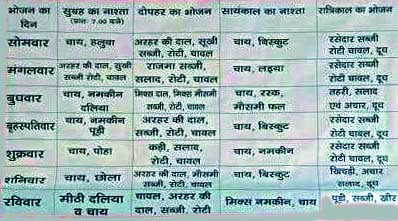 भोजन का दिन | सुबह का नाश्ता (प्रातः 7.00 बजे) | दोपहर का भोजन | सायंकाल का नाश्ता | रात्रिकाल का भोजन
सोमवार | चाय, हलुवा | अरहर की दाल, सूखी सब्जी, रोटी, चावल | चाय, बिस्कुट | रसेदार सब्जी रोटी चावल, दूध
मंगलवार | अरहर की दाल, सुखी सब्जी, रोटी, चावल | राजमा सब्जी, सलाद, रोटी, चावल | चाय, लइया | रसेदार सब्जी रोटी, चावल, दूध
बुधवार | चाय, नमकीन दलिया | मिक्स दाल, मिक्स मौसमी सब्जी, रोटी, चावल | चाय, रस्क, मौसमी फल | तहरी, सलाद एवं अचार, दूध
बृहस्पतिवार | चाय, नमकीन पूड़ी | अरहर की दाल, सब्जी, रोटी, चावल | चाय, बिस्कुट | रसेदार सब्जी रोटी चावल, दूध
शुक्रवार | चाय, पोहा | कढ़ी, सलाद, रोटी, चावल | चाय, नमकीन | रसेदार सब्जी रोटी, चावल, दूध
शनिवार | चाय, छोला | अरहर की दाल, मौसमी सब्जी, रोटी, चावल | चाय, बिस्कुट | खिचड़ी, अचार सलाद, दूध
रविवार | मीठी दलिया व चाय | चावल, अरहर की दाल, सब्जी, रोटी | मिक्स नमकीन, चाय | पूड़ी, सब्जी, खीर